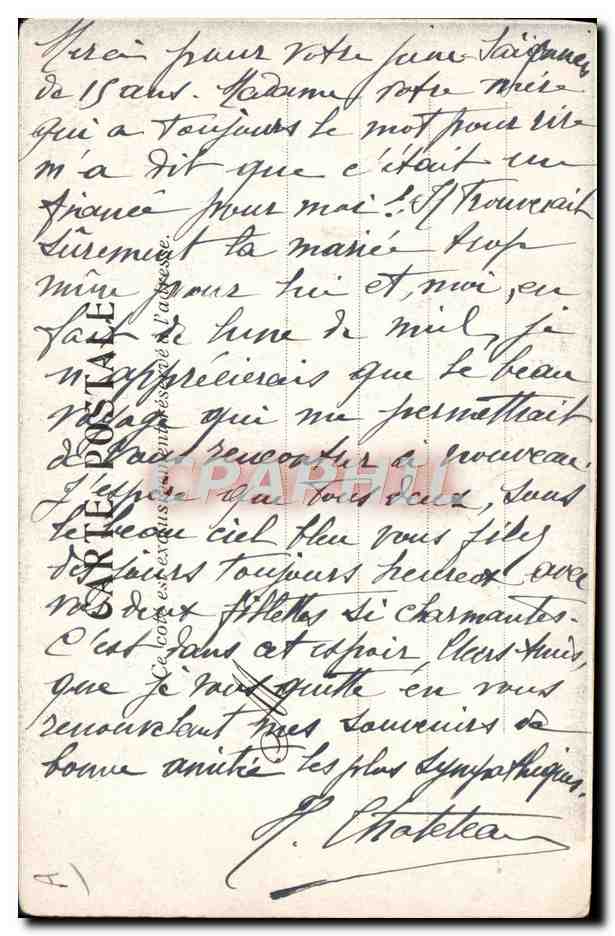 Merci pour votre jeune
de 15 ans. Madame votre mère
qui a toujours le mot pour rire
m'a dit que c'était un
fiancé pour moi! Il trouverait
sûrement la mariée trop
mûre pour lui et, moi, en
fait de lune de miel, je
n'apprécierais que le beau
voyage qui me permettrait
de vous rencontrer à nouveau.
J'espère que tous deux, sous
le beau ciel bleu vous filez
des jours toujours heureux avec
vos deux fillettes si charmantes.
C'est dans cet espoir, Chers Amis,
que je vous quitte en vous
renouvelant mes souvenirs de
bonne amitié les plus sympathiques.
CARTE POSTALE
Ce côté est exclusivement réservé à l'adresse.
M
CPAPHIL
A)